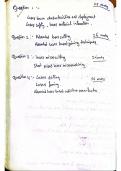 Question 1 :-
25 marks
Laser beam characteristics and deployment
Laser safety, laser material interaction.
Question 2 :- Advanced laser cutting
25 marks
Advanced laser
techniques
Question 3 :- Laser micromachining
25 marks
Short pulsed laser micromachining
Question 4 :- Laser
25 marks
Laser forming
Advanced laser based additive manufacture